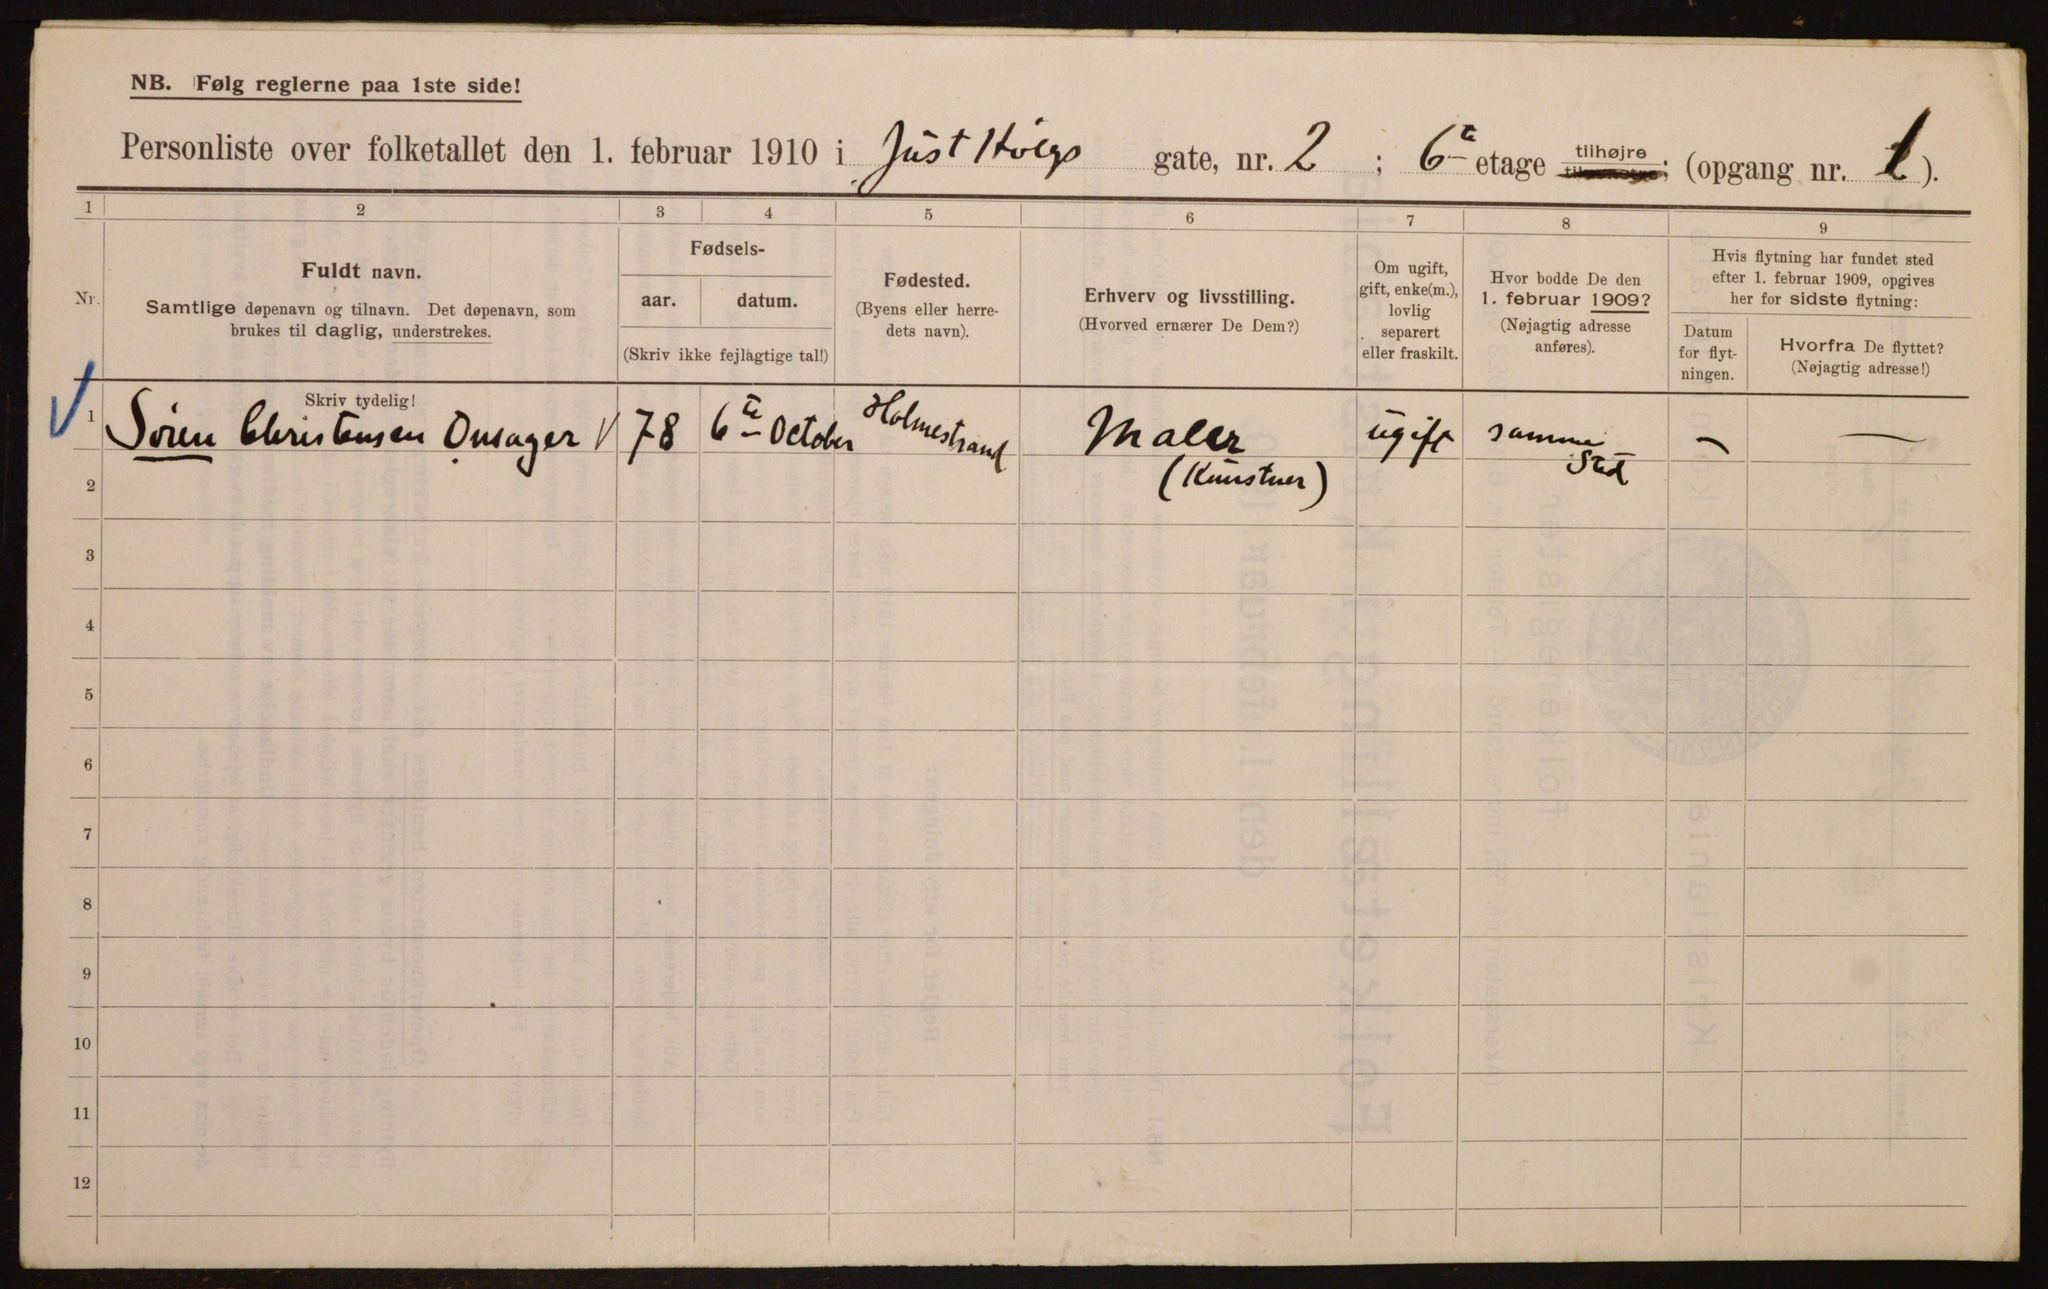 NB. Følg reglerne paa 1ste side!
Personliste over folketallet den 1. februar 1910 i Just Høegs gate, nr. 2 ; 6te etage tilhøjre ; (opgang nr. 1).
1 2 3 4 5 6 7 8 9
Nr.
Fuldt navn.
Samtlige døpenavn og tilnavn. Det døpenavn, som
brukes til daglig, understrekes.
Fødsels-
aar. datum.
(Skriv ikke fejlagtige tal!)
Fødested.
(Byens eller herre-
dets navn).
Erhverv og livsstilling.
(Hvorved ernærer De Dem?)
Om ugift,
gift, enke(m.),
lovlig
separert
eller fraskilt.
Hvor bodde De den
1. februar 1909?
(Nøjagtig adresse
anføres).
Hvis flytning har fundet sted
efter 1. februar 1909, opgives
her for sidste flytning:
Datum
for flyt-
ningen.
Hvorfra De flyttet?
(Nøjagtig adresse!)
Skriv tydelig!
1 Søren Christensen Onsager 78 6te October Holmestrand Maler ugift samme
(Kunstner) Sted
2
3
4
5
6
7
8
9
10
11
12